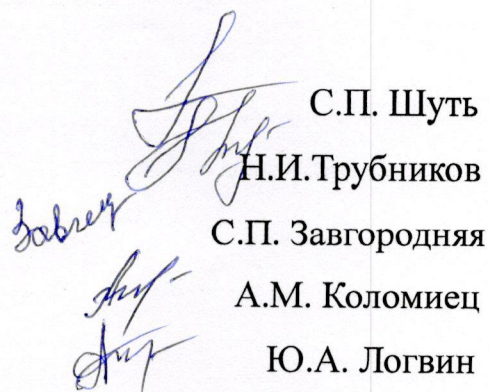 С.П. Шуть
Н.И.Трубников
С.П. Завгородняя
А.М. Коломиец
Ю.А. Логвин